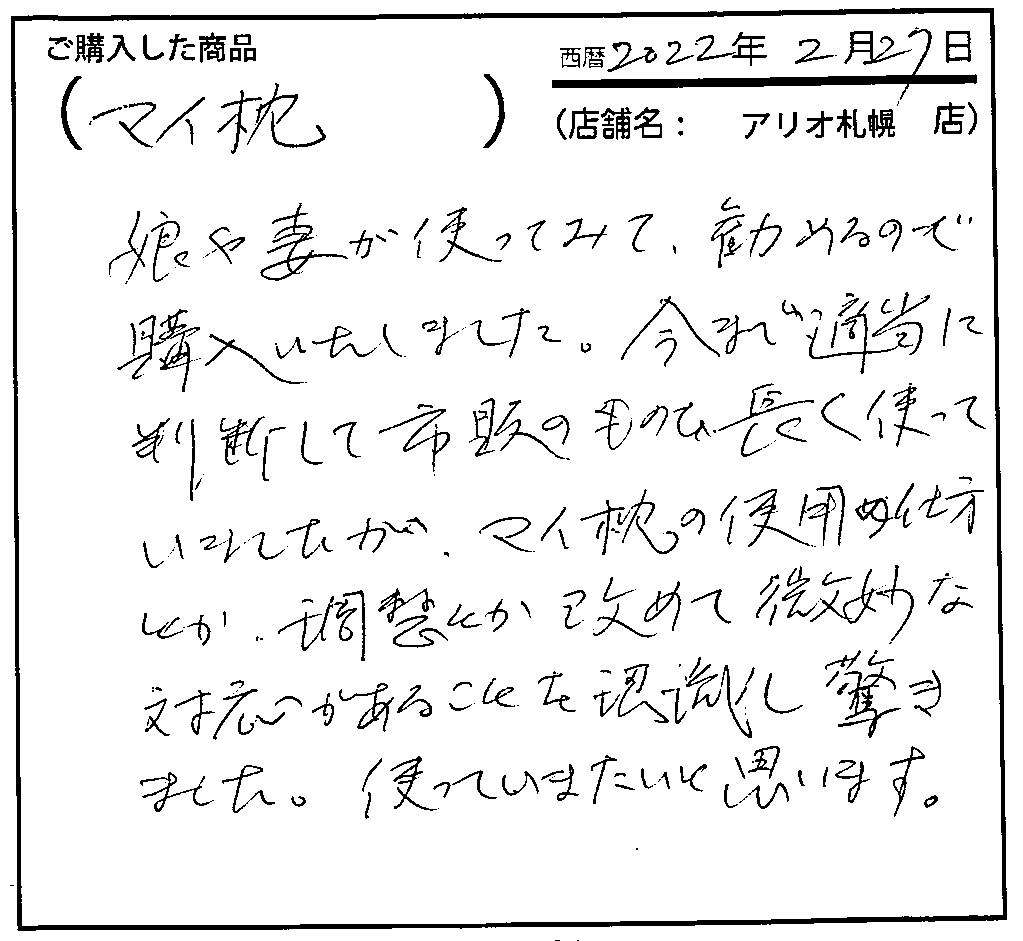 ご購入した商品
西暦2022年 2月27日
(マイ枕)
(店舗名： アリオ札幌 店)
娘や妻が使ってみて、勧めるので
購入いたしました。今まで適当に
判断して市販のものを長く使って
いましたが、マイ枕の使用の仕方
とか、調整とか改めて微妙な
対応があることを認識し驚き
ました。使っていきたいと思います。